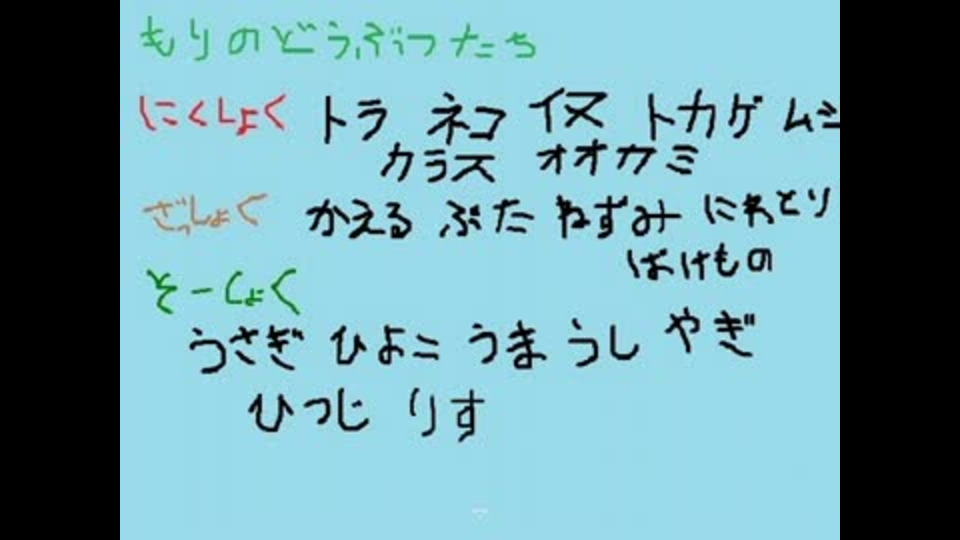 もりのどうぶつたち
にくしょく トラ ネコ イヌ トカゲ ムシ
カラス オオカミ
ざっしょく かえる ぶた ねずみ にわとり
ばけもの
そーしょく
うさぎ ひよこ うま うし やぎ
ひつじ りす